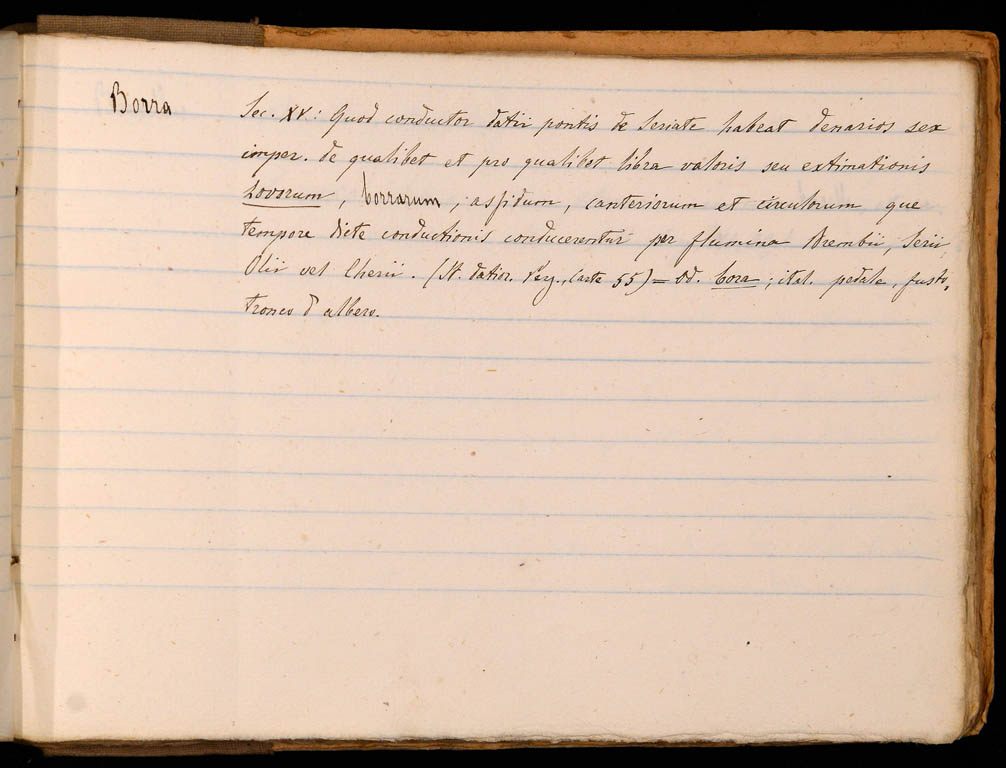 Borra
Sec. XV: Quod conductor datii pontis de Seriate habeat denarios sex
imper. de qualibet et pro qualibet libra valoris seu extimationis
bovorum, borrarum, assidum, canteriorum et circulorum que
tempore dicte conductionis conducerentur per flumina Brembii, Serii,
Olii vel Cherii. (St. datior. Reg., carte 55) = Dd. bora; ital. pedale, fusto,
tronco d'albero.